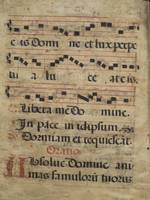 eis Domi ne et lux perpe
tu a lu ce at e is.
Libera me Do mine.
In pace in idipsum.
Dormiam et requiescat.
Oratio.
Absolve Domine ani
mas famulorū tuorū